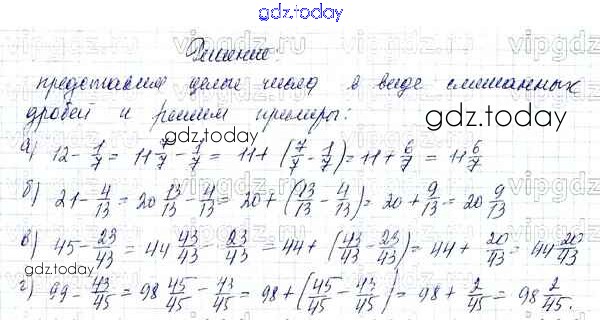 gdz.today
Решение:
представим целые числа в виде смешанных
дробей и решим примеры:
gdz.today
а) 12 - 1/7 = 11 7/7 - 1/7 = 11 + (7/7 - 1/7) = 11 + 6/7 = 11 6/7
б) 21 - 4/13 = 20 13/13 - 4/13 = 20 + (13/13 - 4/13) = 20 + 9/13 = 20 9/13
в) 45 - 23/43 = 44 43/43 - 23/43 = 44 + (43/43 - 23/43) = 44 + 20/43 = 44 20/43
gdz.today
г) 99 - 43/45 = 98 45/45 - 43/45 = 98 + (45/45 - 43/45) = 98 + 2/45 = 98 2/45.